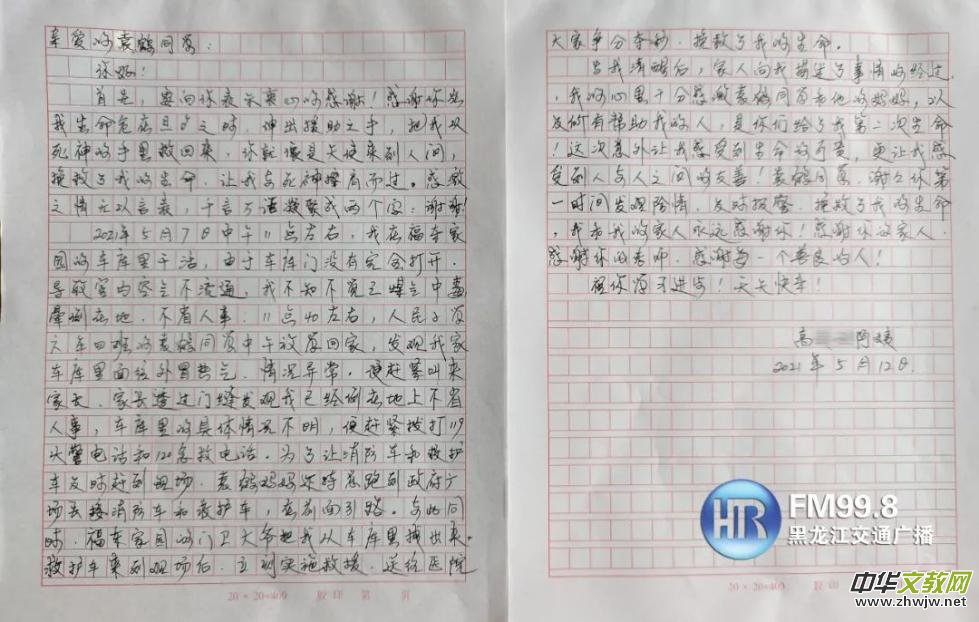 亲爱的袁鹤同学：
你好！
首先，要向你表示衷心的感谢！感谢你在
我生命危在旦夕之时，伸出援助之手，把我从
死神的手里救回来，你就像是天使来到人间，
挽救了我的生命，让我与死神擦肩而过。感激
之情无以言表，千言万语凝聚成两个字：谢谢！
2021年5月7日中午11点左右，我在福东家
园的车库里干活，由于车库门没有完全打开，
导致室内空气不流通，我不知不觉已煤气中毒
晕倒在地，不省人事。11点40左右，人民小学
六年四班的袁鹤同学中午放学回家，发现我家
车库里面往外冒热气，情况异常，便赶紧叫来
家长。家长透过门缝发现我已经倒在地上不省
人事，车库里的具体情况不明，便赶紧拨打119
火警电话和120急救电话。为了让消防车和救护
车及时赶到现场，袁鹤妈妈还特意跑到政府广
场去接消防车和救护车，在前面引路。与此同
时，福东家园的门卫大爷把我从车库里拽出来。
救护车来到现场后，立刻实施救援，送往医院
20×20=400
大家争分夺秒，挽救了我的生命。
当我清醒后，家人向我描述了事情的经过
，我的心里十分感激袁鹤同学和他的妈妈，以
及所有帮助我的人，是你们给了我第二次生命
！这次意外让我感受到生命的可贵，更让我感
受到人与人之间的友善！袁鹤同学，谢谢你第
一时间发现险情，及时报警，挽救了我的生命
，我和我的家人永远感谢你！感谢你的家人，
感谢你的老师，感谢每一个善良的人！
祝你学习进步！天天快乐！
高
2021年5月12日
20×20=400
HR FM99.8
黑龙江交通广播
中华文教网
www.zhwjw.net